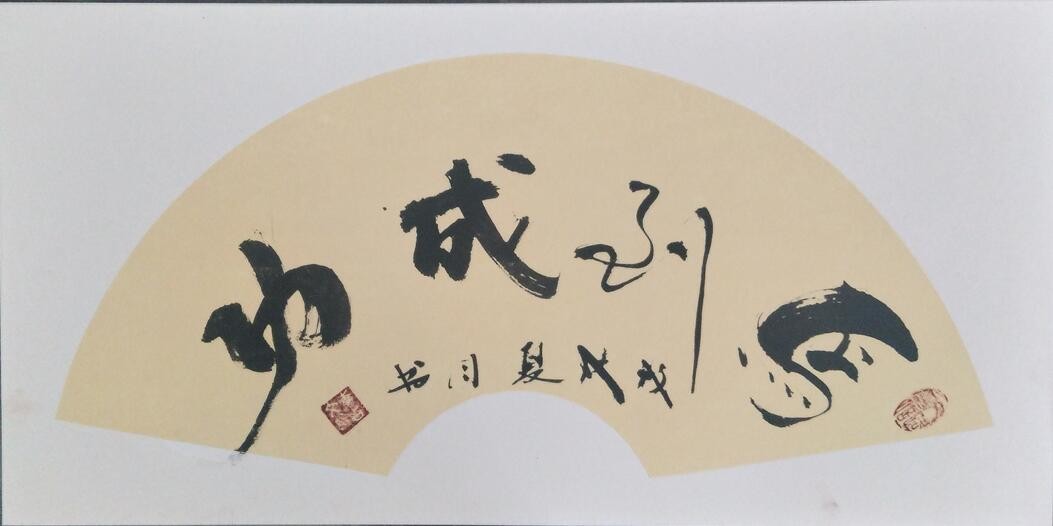 馬到成功
戊戌夏月书